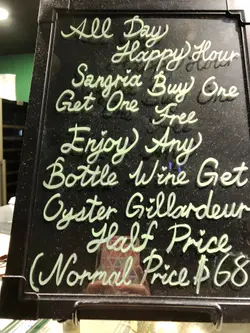 All Day
Happy Hour
Sangria Buy One
Get One Free
Enjoy Any
Bottle Wine Get
Oyster Gillardeur
Half Price
(Normal Price $68